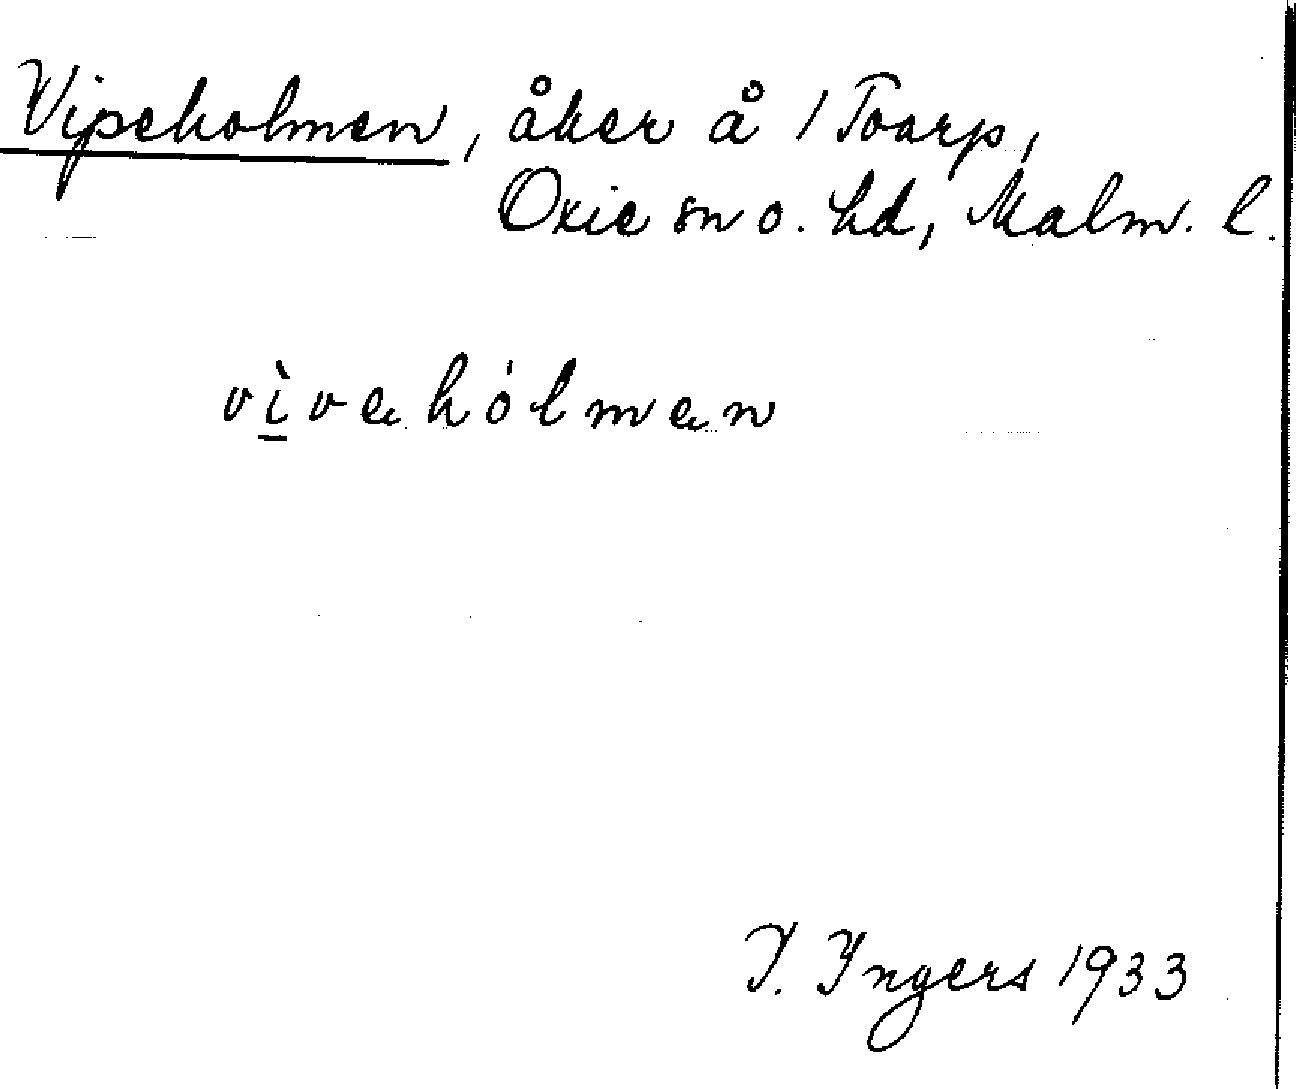 Vipeholmen, åker å 1 Toarp,
Oxie sn o. hd, Malm. l.
vìvahólman
I. Ingers 1933